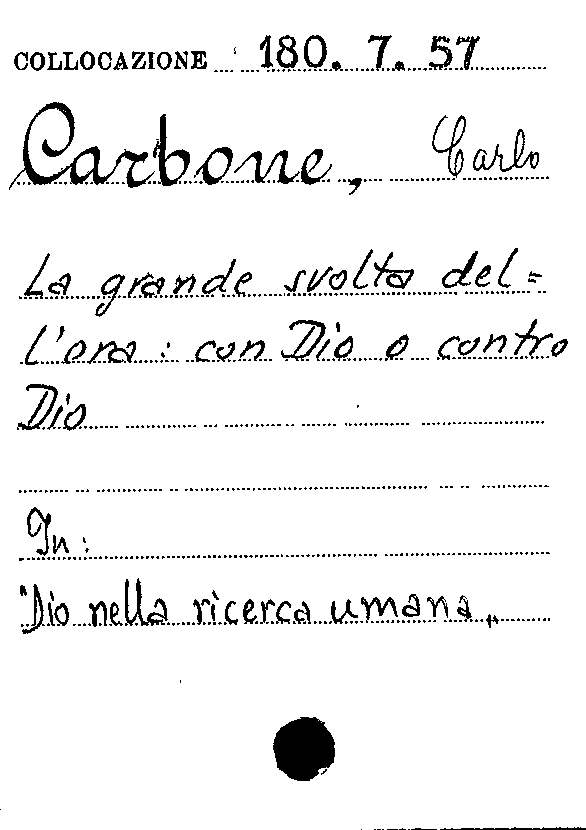 COLLOCAZIONE 180. 7. 57
Carbone, Carlo
La grande svolta del=
l'ora : con Dio o contro
Dio
In:
"Dio nella ricerca umana„